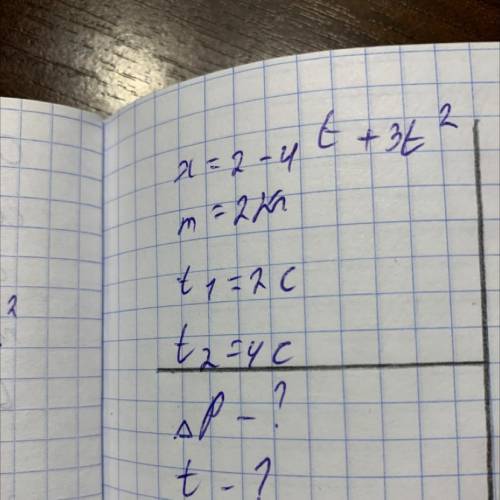 x = 2 - 4t + 3t²
m = 2кг
t₁ = 2 c
t₂ = 4 c
ΔP - ?
t - ?
2